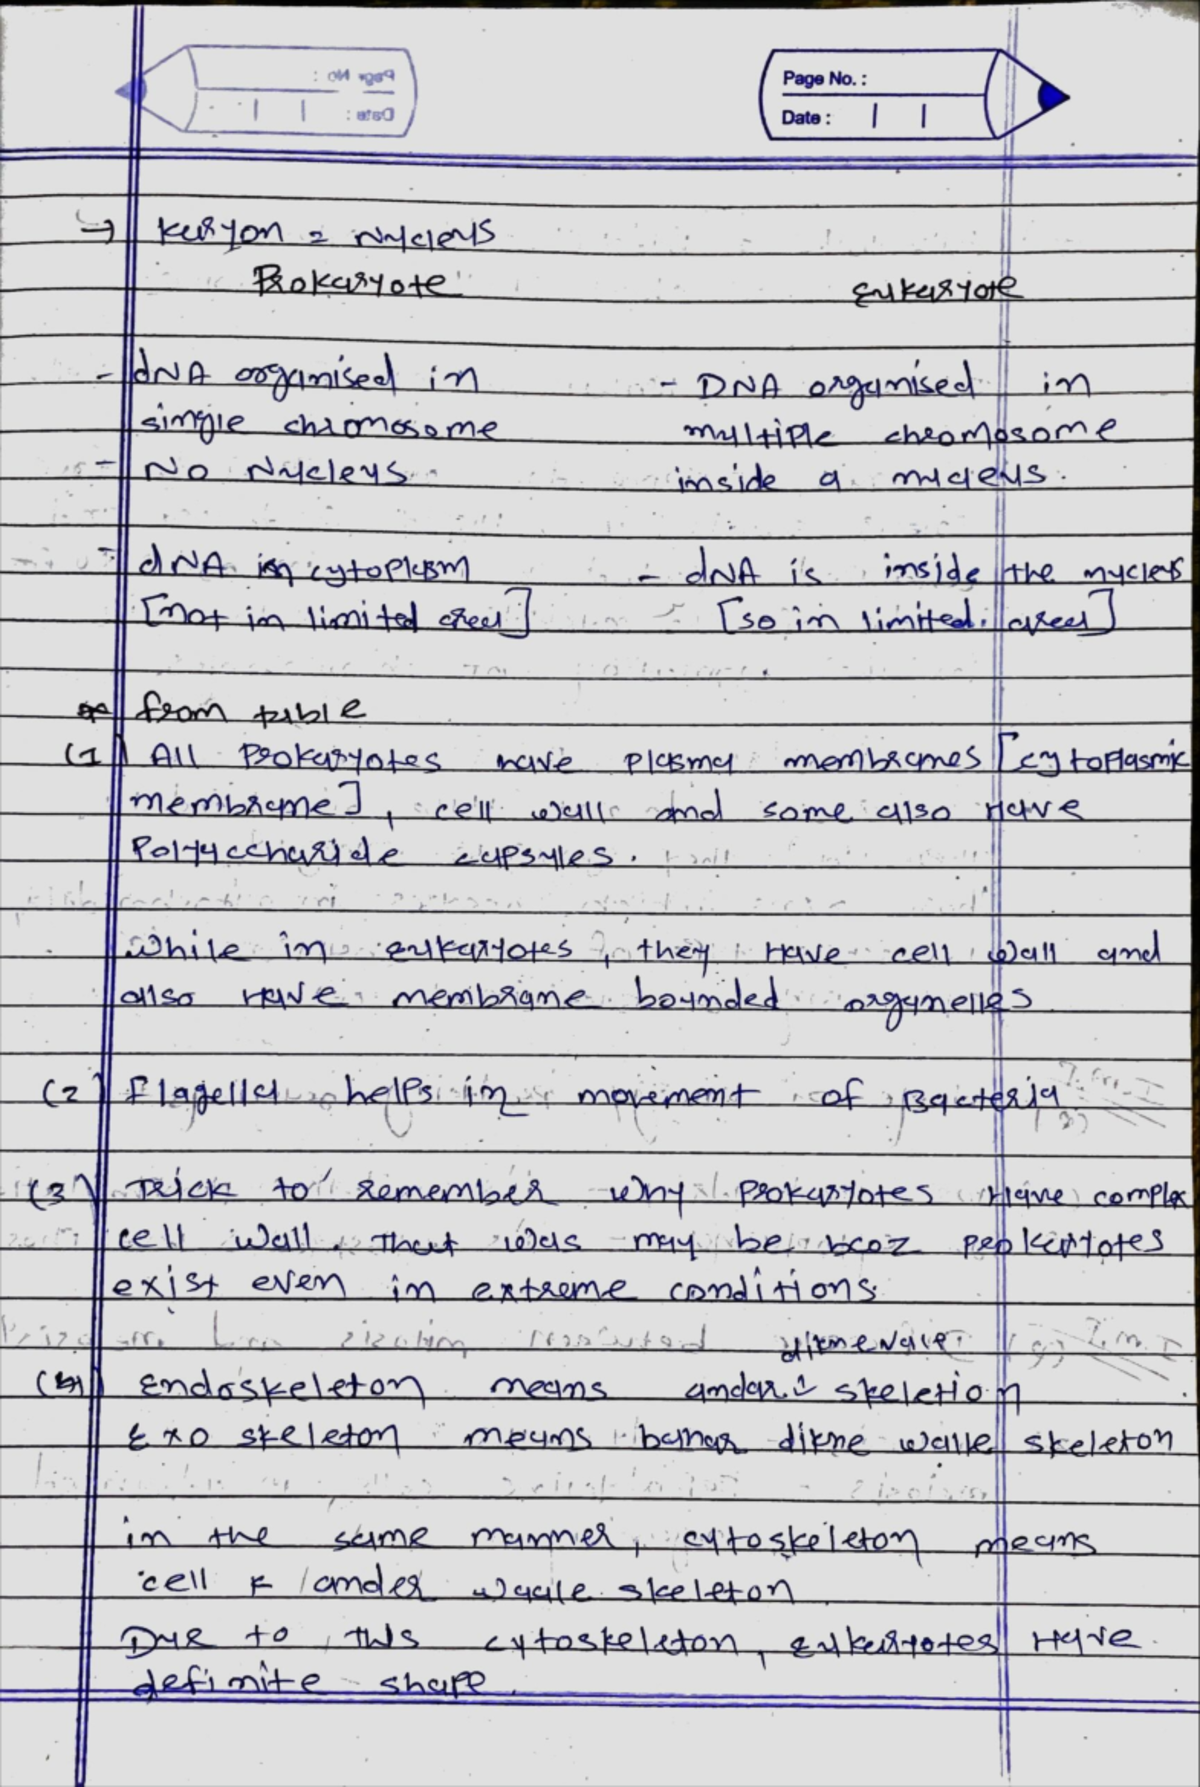 Page No. :
Date :
→ Karyon = Nucleus
Prokaryote Eukaryote
- dNA organised in - DNA organised in
single chromosome multiple chromosome
- No Nucleus inside a nucleus.
- dNA in cytoplasm - dNA is inside the nucleus
[not in limited area] [so in limited area]
* from table
(1) All Prokaryotes have plasma membranes [cytoplasmic
membrane], cell wall and some also have
Polyaccharide capsules.
while in eukaryotes, they have cell wall and
also have membrane bounded organelles
(2) flagella helps in movement of Bacteria
(3) Trick to remember why Prokaryotes have complex
cell wall. That was may be bcoz prokartotes
exist even in extreme conditions.
dikhne wale
(4) Endoskeleton means andar skeletion
Exo skeleton means bahar dikhne walle skeleton
in the same manner, cytoskeleton means
cell k ander waale skeleton
Due to this cytoskeleton, eukaryotes have
definite shape.